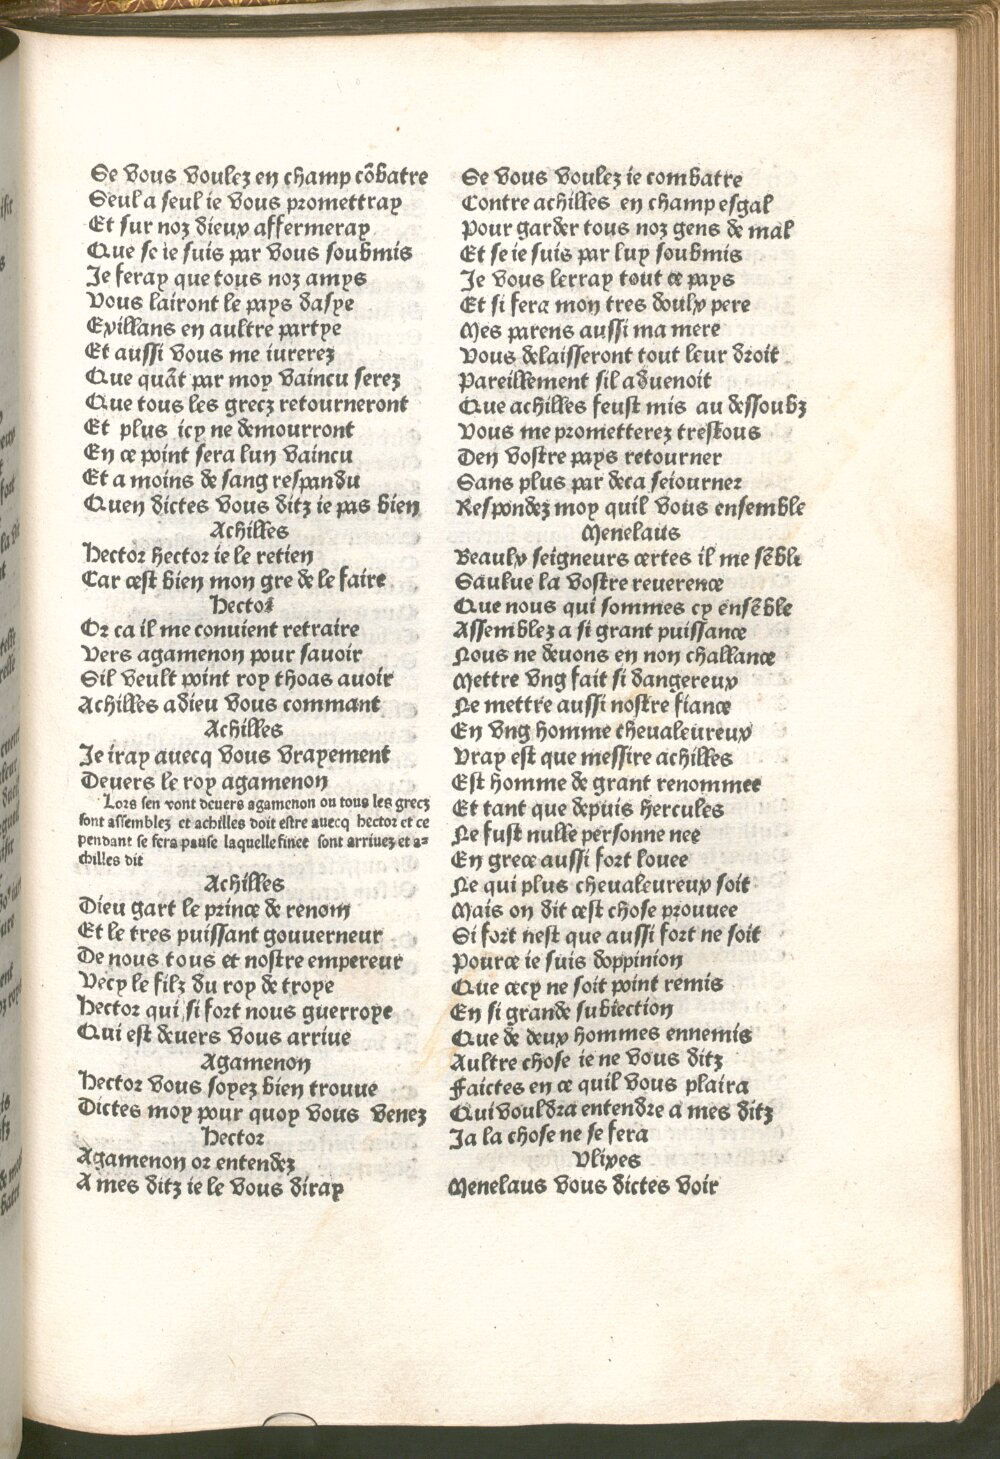 Se vous voulez en champ cõbatre
Seul a seul ie vous promettray
Et sur noz dieux affermeray
Que se ie suis par vous soubmis
Je feray que tous noz amys
Vous lairont le pays dasye
Exillans en aultre partye
Et aussi vous me iurerez
Que quãt par moy vaincu serez
Que tous les grecz retourneront
Et plus icy ne demourront
En ce point sera lun vaincu
Et a moins de sang respandu
Quen dictes vous ditz ie pas bien
Achilles
Hector hector ie le retien
Car cest bien mon gre de le faire
Hector
Or ca il me conuient retraire
Vers agamenon pour sauoir
Sil veult point roy thoas auoir
Achilles adieu vous commant
Achilles
Je iray auecq vous vrayement
Deuers le roy agamenon
Lors sen vont deuers agamenon ou tous les grecz
sont assemblez et achilles doit estre auecq hector et ce
pendant se fera pause laquelle finee sont arriuez et a=
chilles dit
Achilles
Dieu gart le prince de renom
Et le tres puissant gouuerneur
De nous tous et nostre empereur
Vecy le filz du roy de troye
Hector qui si fort nous guerroye
Qui est deuers vous arriue
Agamenon
Hector vous soyez bien trouue
Dictes moy pour quoy vous venez
Hector
Agamenon or entendez
A mes ditz ie le vous diray
Se vous voulez ie combatre
Contre achilles en champ esgal
Pour garder tous noz gens de mal
Et se ie suis par luy soubmis
Je vous lerray tout ce pays
Et si fera mon tres doulx pere
Mes parens aussi ma mere
Vous delaisseront tout leur droit
Pareillement sil aduenoit
Que achilles feust mis au dessoubz
Vous me prometterez trestous
Den vostre pays retourner
Sans plus par deca seiourner
Respondez moy quil vous ensemble
Menelaus
Beaulx seigneurs certes il me sẽble
Saulue la vostre reuerence
Que nous qui sommes cy ensẽble
Assemblez a si grant puissance
Nous ne deuons en non challance
Mettre vng fait si dangereux
Ne mettre aussi nostre fiance
En vng homme cheualeureux
Vray est que messire achilles
Est homme de grant renommee
Et tant que depuis hercules
Ne fust nulle personne nee
En grece aussi fort louee
Ne qui plus cheualeureux soit
Mais on dit cest chose prouuee
Si fort nest que aussi fort ne soit
Pource ie suis doppinion
Que cecy ne soit point remis
En si grande subiection
Que de deux hommes ennemis
Aultre chose ie ne vous ditz
Faictes en ce quil vous plaira
Qui vouldra entendre a mes ditz
Ja la chose ne se fera
Vlixes
Menelaus vous dictes voir